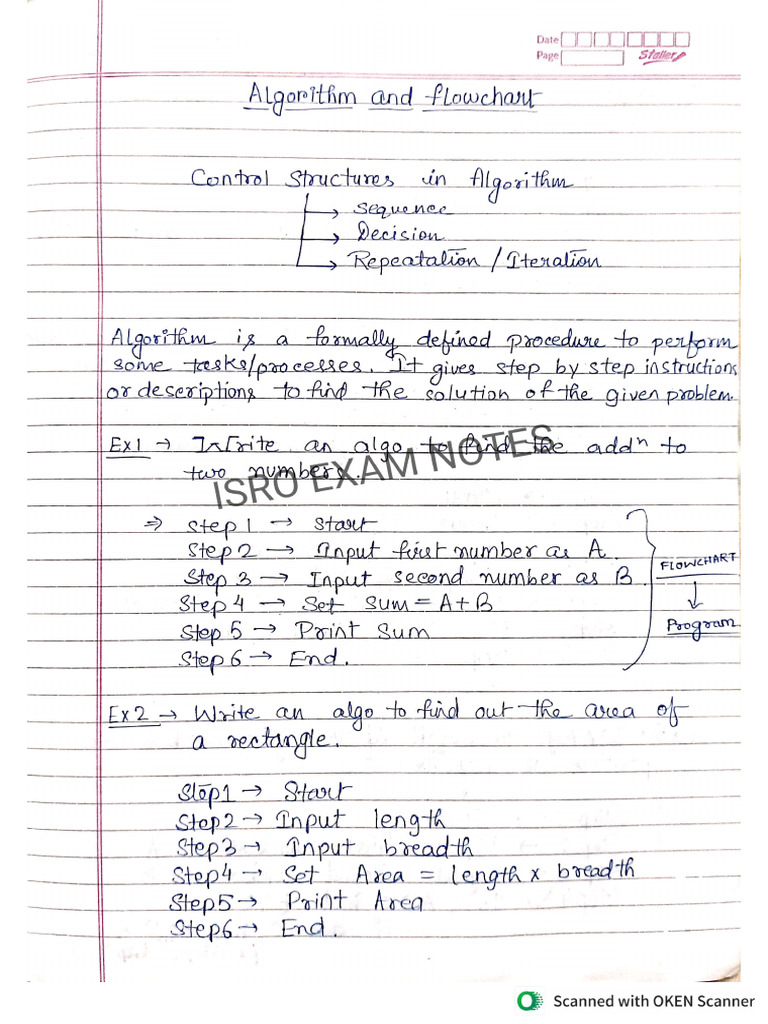 Date
Page Staller
Algorithm and flowchart
Control Structures in Algorithm
→ Sequence
→ Decision
→ Repeatation / Iteration
Algorithm is a formally defined procedure to perform
some tasks/processes. It gives step by step instructions
or descriptions to find the solution of the given problem.
Ex1 → Write an algo to find the addⁿ to
two numbers.
ISRO EXAM NOTES
⇒ Step 1 → Start
Step 2 → Input first number as A.
Step 3 → Input second number as B.
Step 4 → Set Sum = A+B
Step 5 → Print Sum
Step 6 → End.
FLOWCHART
↓
Program
Ex2 → Write an algo to find out the area of
a rectangle.
Step1 → Start
Step2 → Input length
Step3 → Input breadth
Step4 → Set Area = length x breadth
Step5 → Print Area
Step6 → End.
Scanned with OKEN Scanner